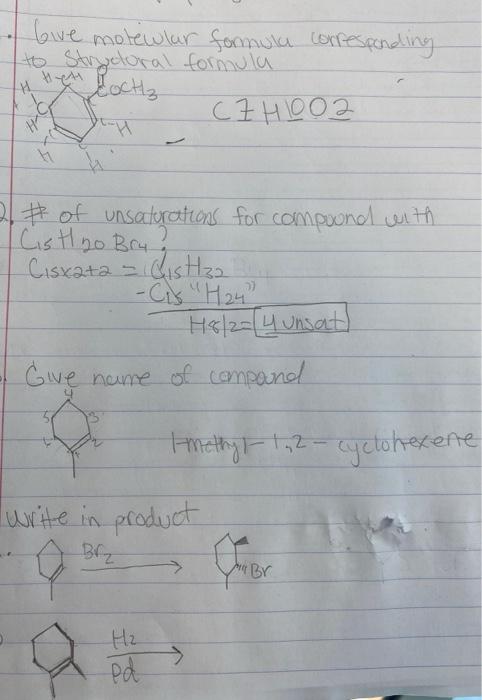 Give molecular formula corresponding
to Structural formula
H H-C-H
COCH3
H C
H
C-H
H
H
C7H10O2
2. # of unsaturations for compound with
C15H20Br4?
C15x2+2 = C15H32
-C15"H24"
H8/2= 4 unsat
Give name of compound
4
5 3
6 2
1
1-methyl-1,2-cyclohexene
Write in product
Br2
Br
H2
Pd